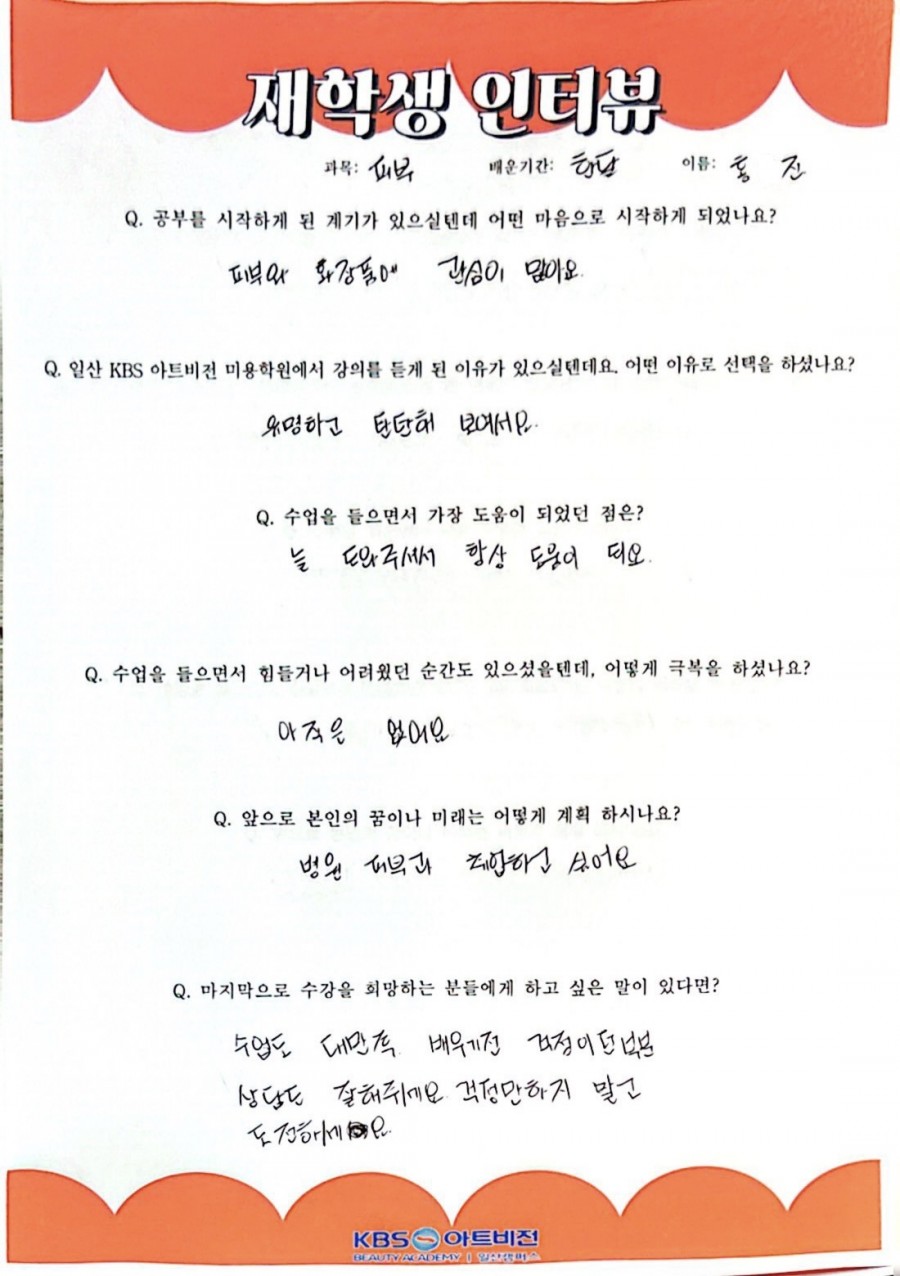 재학생 인터뷰
과목: 피부 배운기간: 한달 이름: 홍 진
Q. 공부를 시작하게 된 계기가 있으실텐데 어떤 마음으로 시작하게 되었나요?
피부와 화장품에 관심이 많아요.
Q. 일산 KBS 아트비전 미용학원에서 강의를 듣게 된 이유가 있으실텐데요. 어떤 이유로 선택을 하셨나요?
유명하고 탄탄해 보여서요.
Q. 수업을 들으면서 가장 도움이 되었던 점은?
늘 도와주셔서 항상 도움이 되요.
Q. 수업을 들으면서 힘들거나 어려웠던 순간도 있으셨을텐데, 어떻게 극복을 하셨나요?
아직은 없어요
Q. 앞으로 본인의 꿈이나 미래는 어떻게 계획 하시나요?
병원 피부과 취업하고 싶어요
Q. 마지막으로 수강을 희망하는 분들에게 하고 싶은 말이 있다면?
수업도 대만족. 배우기전 걱정이던부분
상담도 잘해줘요. 걱정만하지 말고
도전하세요.
KBS 아트비전
BEAUTY ACADEMY | 일산캠퍼스